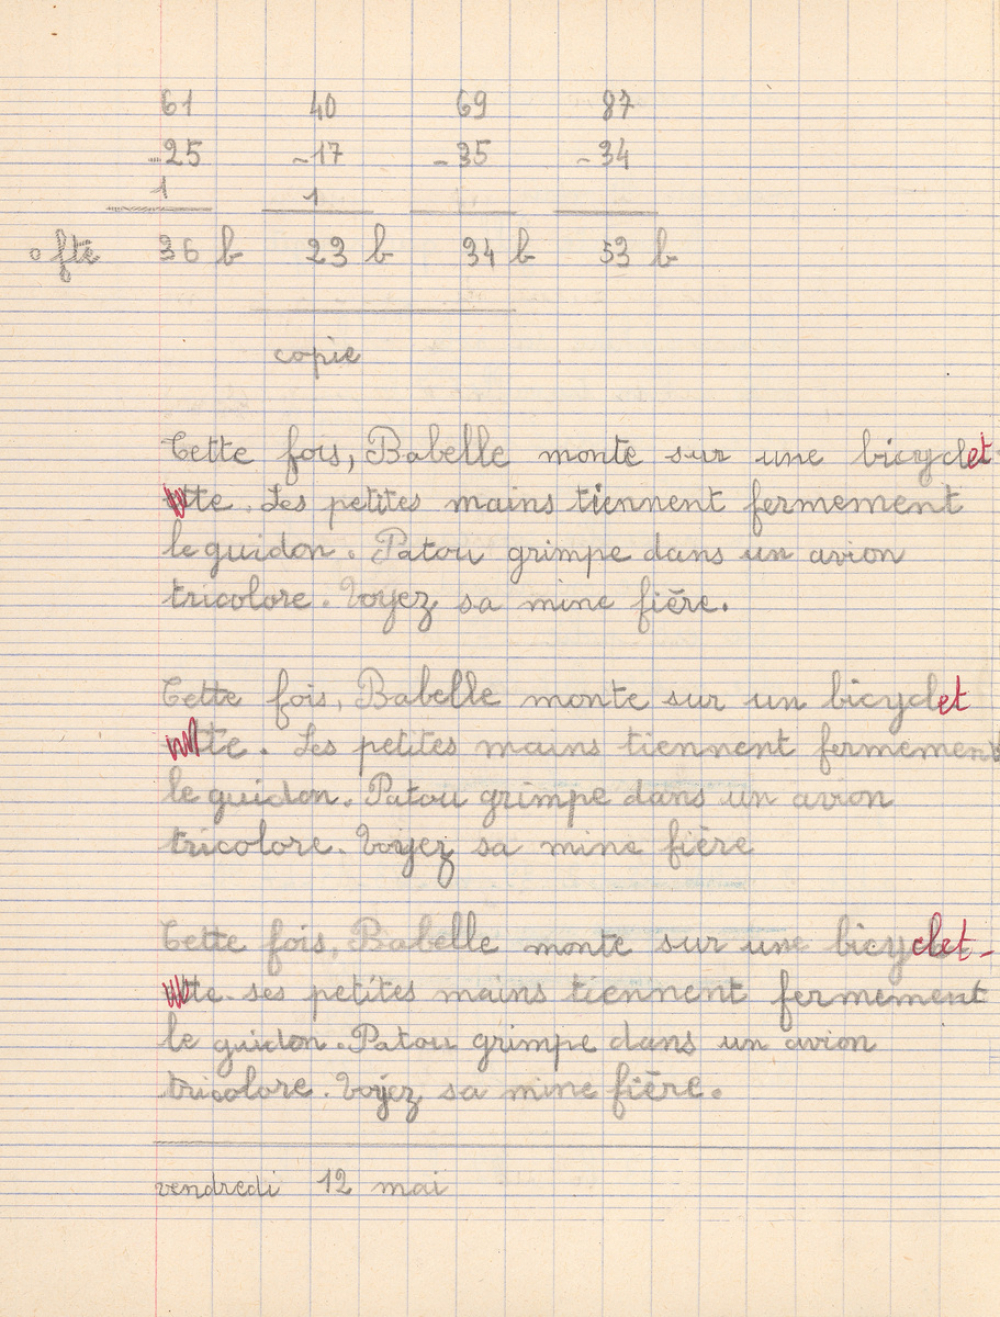 61 40 69 87
-25 -17 -35 -34
1 1
0 fte 36 b 23 b 34 b 53 b
copie
Cette fois, Babelle monte sur une bicyclet
tte. Ses petites mains tiennent fermement
le guidon. Patou grimpe dans un avion
tricolore. Voyez sa mine fière.
Cette fois, Babelle monte sur un bicyclet
te. Ses petites mains tiennent fermement
le guidon. Patou grimpe dans un avion
tricolore. Voyez sa mine fière
Cette fois, Babelle monte sur une bicyclet-
te. ses petites mains tiennent fermement
le guidon. Patou grimpe dans un avion
tricolore. Voyez sa mine fière.
vendredi 12 mai